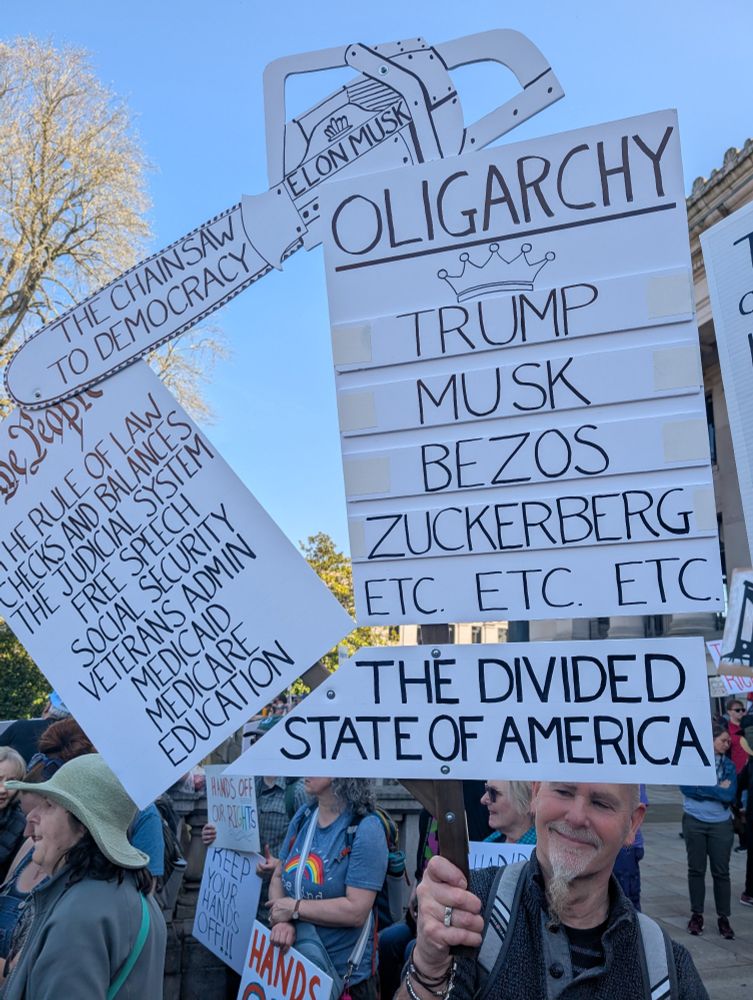 ELON MUSK
THE CHAINSAW
TO DEMOCRACY
We People
THE RULE OF LAW
CHECKS AND BALANCES
THE JUDICIAL SYSTEM
FREE SPEECH
SOCIAL SECURITY
VETERANS ADMIN
MEDICAID
MEDICARE
EDUCATION
OLIGARCHY
TRUMP
MUSK
BEZOS
ZUCKERBERG
ETC. ETC. ETC.
THE DIVIDED
STATE OF AMERICA
HANDS OFF
OUR RIGHTS
KEEP
YOUR
HANDS
OFF!!!
HANDS
HAND